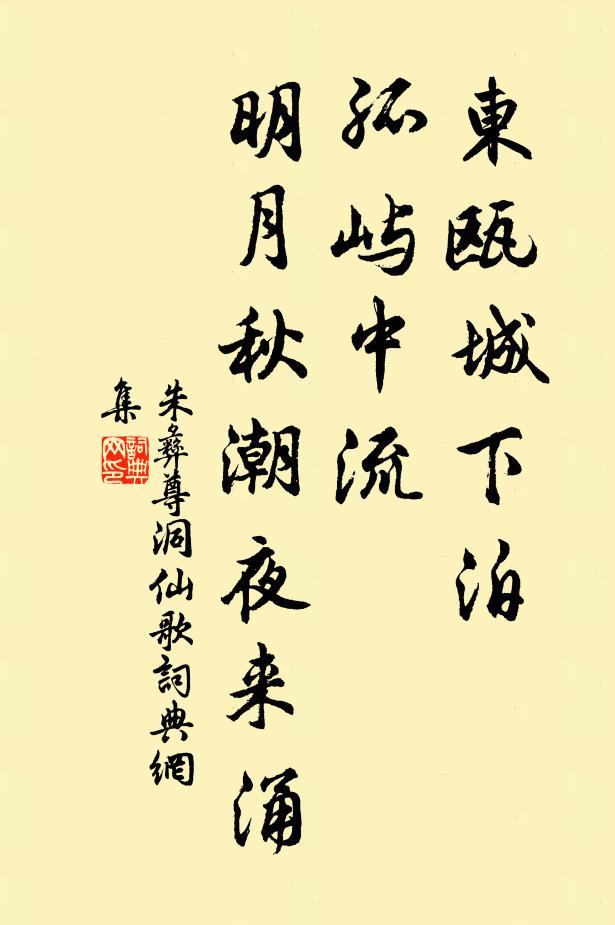 東甌城下泊
孤屿中流
明月秋潮夜来涌
朱彝尊洞仙歌詞典網
集
詞典网印